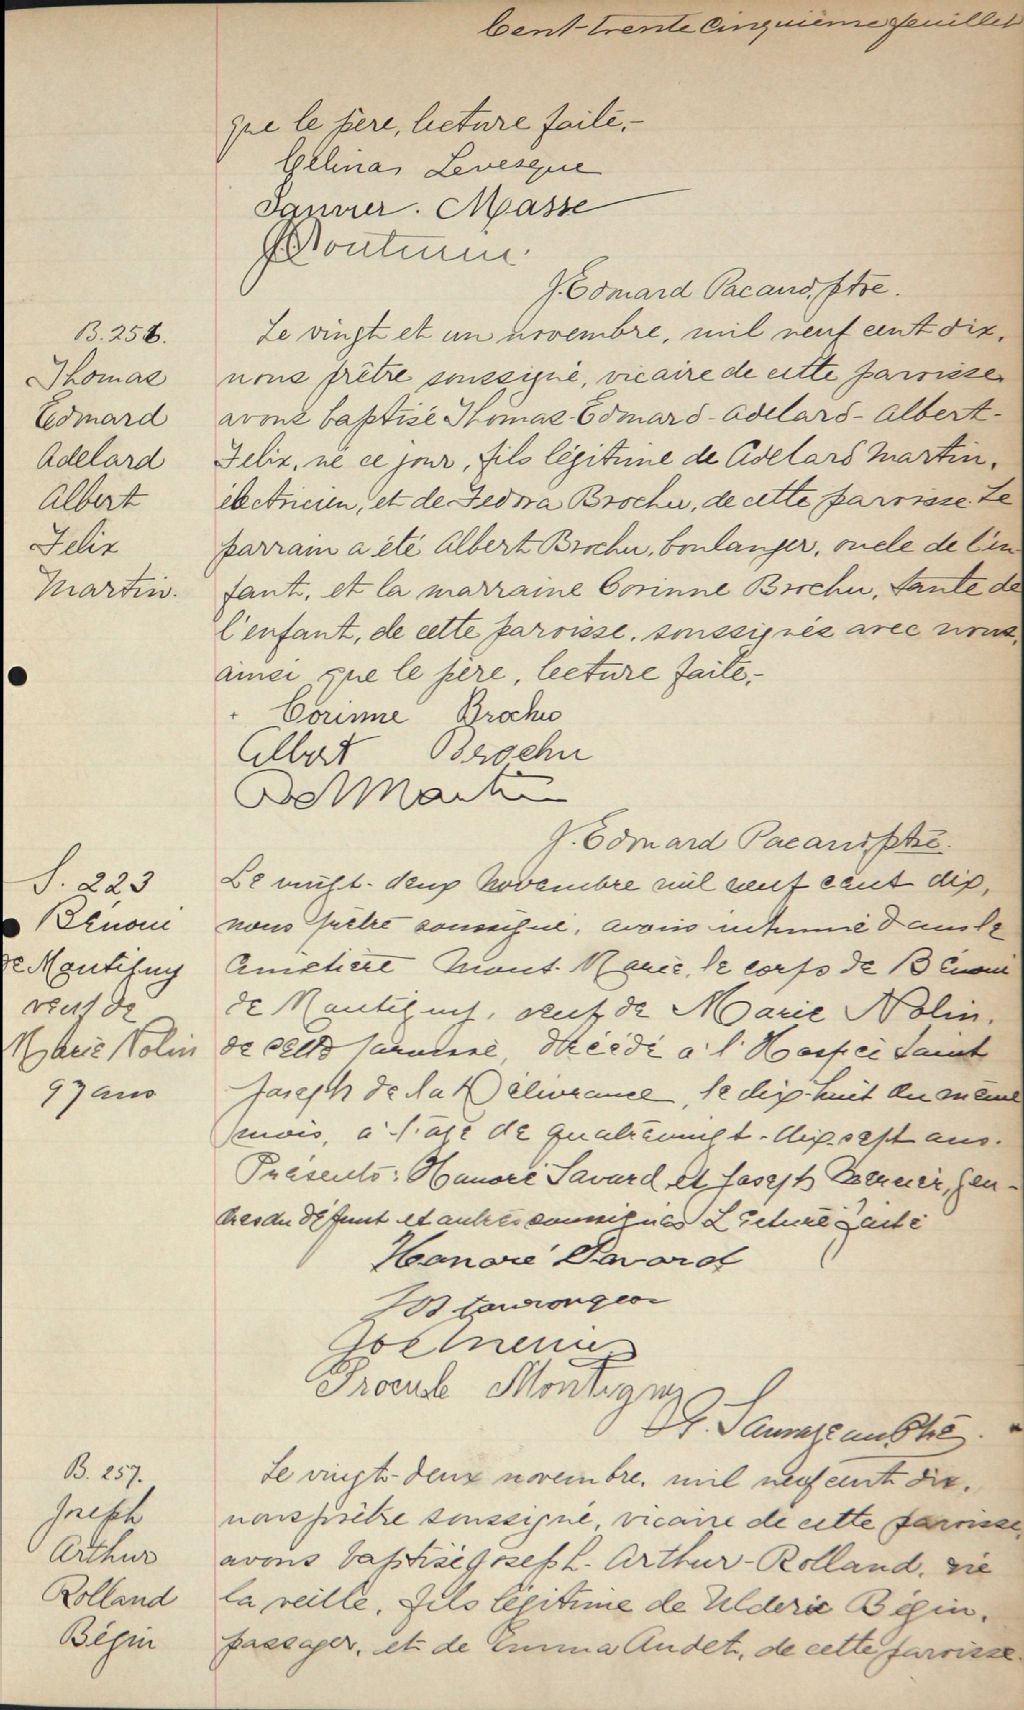 Cent-trente cinquième feuillet
que le père, lecture faite.-
Gelinas Levesque
Janvier. Masse
J. Edouard Pacaud, ptre.
B. 256.
Thomas
Edouard
Adelard
Albert
Felix
Martin.
Le vingt et un novembre, mil neuf cent dix,
nous prêtre soussigné, vicaire de cette paroisse
avons baptisé Thomas-Edouard-Adelard-Albert-
Felix, né ce jour, fils légitime de Adelard Martin,
électricien, et de Fedora Brochu, de cette paroisse. Le
parrain a été Albert Brochu, boulanger, oncle de l'en-
fant, et la marraine Corinne Brochu, tante de
l'enfant, de cette paroisse, soussignés avec nous,
ainsi que le père, lecture faite.-
Corinne Brochu
Albert Brochu
Ad Martin
J. Edouard Pacaud, ptre.
S. 223
Bénoni
de Montigny
veuf de
Marie Nolin
97 ans
Le vingt-deux novembre mil neuf cent dix,
nous prêtre soussigné, avons inhumé dans le
cimetière Mont-Marie, le corps de Bénoni
de Montigny, veuf de Marie Nolin,
de cette paroisse, décédé à l'Hospice Saint
Joseph de la Délivrance, le dix-huit du même
mois, à l'âge de quatrevingt-dix-sept ans.
Présents: Honoré Savard et Joseph Mercier, gen-
dres du défunt et autres soussignés Lecture faite
Honoré Savard
Jos
Joe Mercier
Procule Montigny
G. Sauvageau, Ptre.
B. 257.
Joseph
Arthur
Rolland
Bégin
Le vingt-deux novembre, mil neuf cent dix,
nous prêtre soussigné, vicaire de cette paroisse,
avons baptisé Joseph-Arthur-Rolland, né
la veille, fils légitime de Ulderic Bégin,
passager, et de Emma Audet, de cette paroisse.